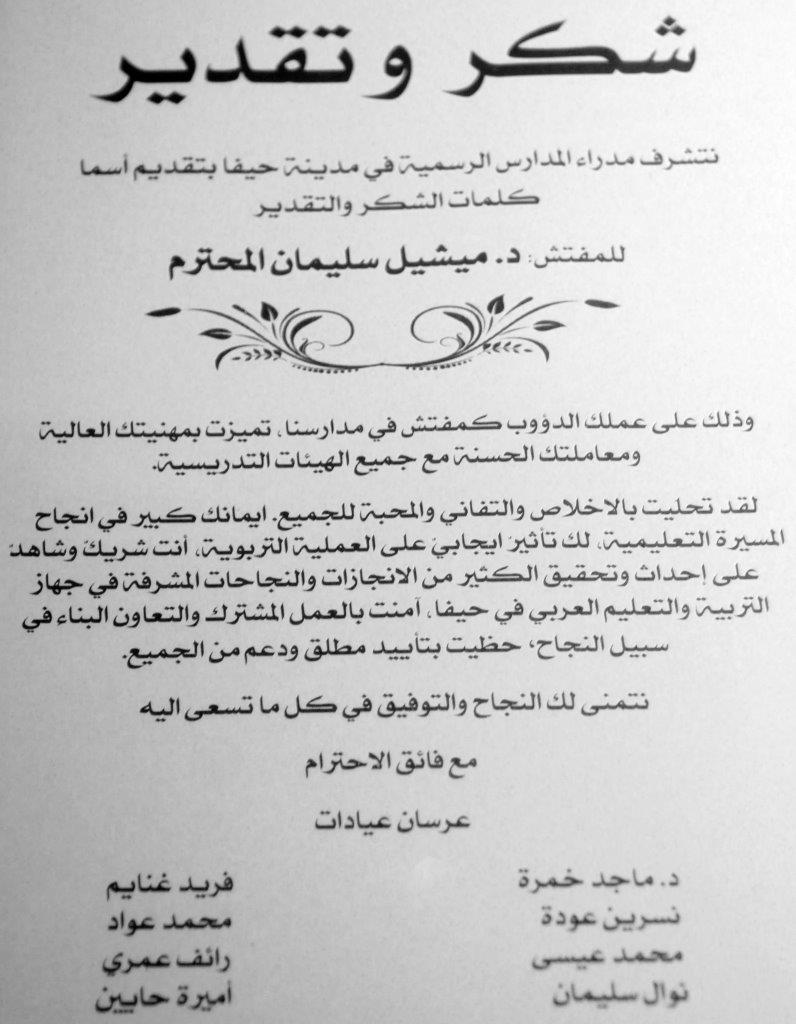 شكر وتقدير
نتشرف مدراء المدارس الرسمية في مدينة حيفا بتقديم أسما
كلمات الشكر والتقدير
للمفتش: د. ميشيل سليمان المحترم
وذلك على عملك الدؤوب كمفتش في مدارسنا، تميزت بمهنيتك العالية
ومعاملتك الحسنة مع جميع الهيئات التدريسية.
لقد تحليت بالاخلاص والتفاني والمحبة للجميع. ايمانك كبير في انجاح
المسيرة التعليمية، لك تأثيرَ ايجابيَ على العملية التربوية، أنت شريكَ وشاهدَ
على إحداث وتحقيق الكثير من الانجازات والنجاحات المشرفة في جهاز
التربية والتعليم العربي في حيفا، آمنت بالعمل المشترك والتعاون البناء في
سبيل النجاح، حظيت بتأييد مطلق ودعم من الجميع.
نتمنى لك النجاح والتوفيق في كل ما تسعى اليه
مع فائق الاحترام
عرسان عيادات
د. ماجد خمرة فريد غنايم
نسرين عودة محمد عواد
محمد عيسى رائف عمري
نوال سليمان أميرة حايين